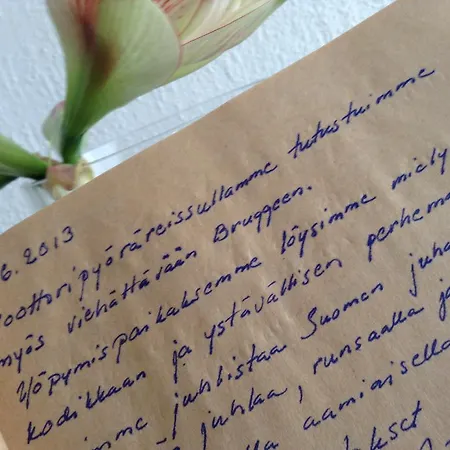 6. 2013
oottoripyöräreissullamme tutustuimme
myös viehättävään Bruggeen.
Yöpymispaikaksemme löysimme miely
kodikkaan ja ystävällisen perhema
imme juhlistaa Suomen juha
juhlaa, runsaalla ja
lla aamiaisella
kset